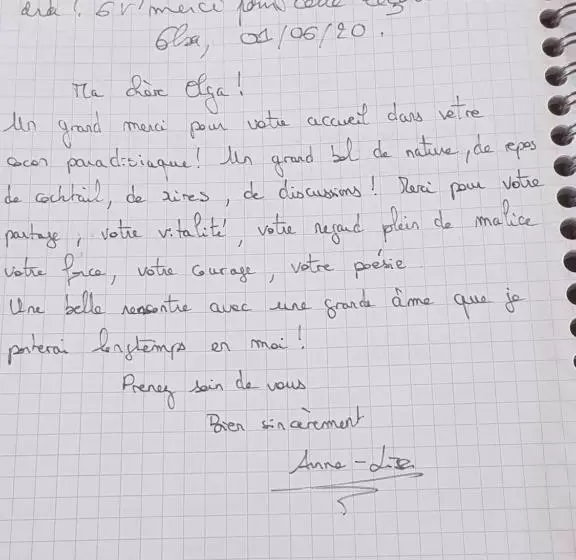 ! Gr/merci pour cette
Elsa, 01/06/20.
Ma chère Olga !
Un grand merci pour votre accueil dans votre
cocon paradisiaque ! Un grand bol de nature, de repos
de cochtail, de rires, de discussions ! Merci pour votre
partage, votre vitalité, votre regard plein de malice
votre force, votre courage, votre poésie
Une belle rencontre avec une grande âme que je
porterai longtemps en moi !
Prenez soin de vous
Bien sincèrement
Anne-Lise